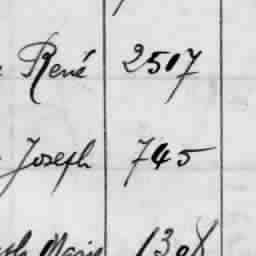 René 2507
Joseph 745
Marie 1308